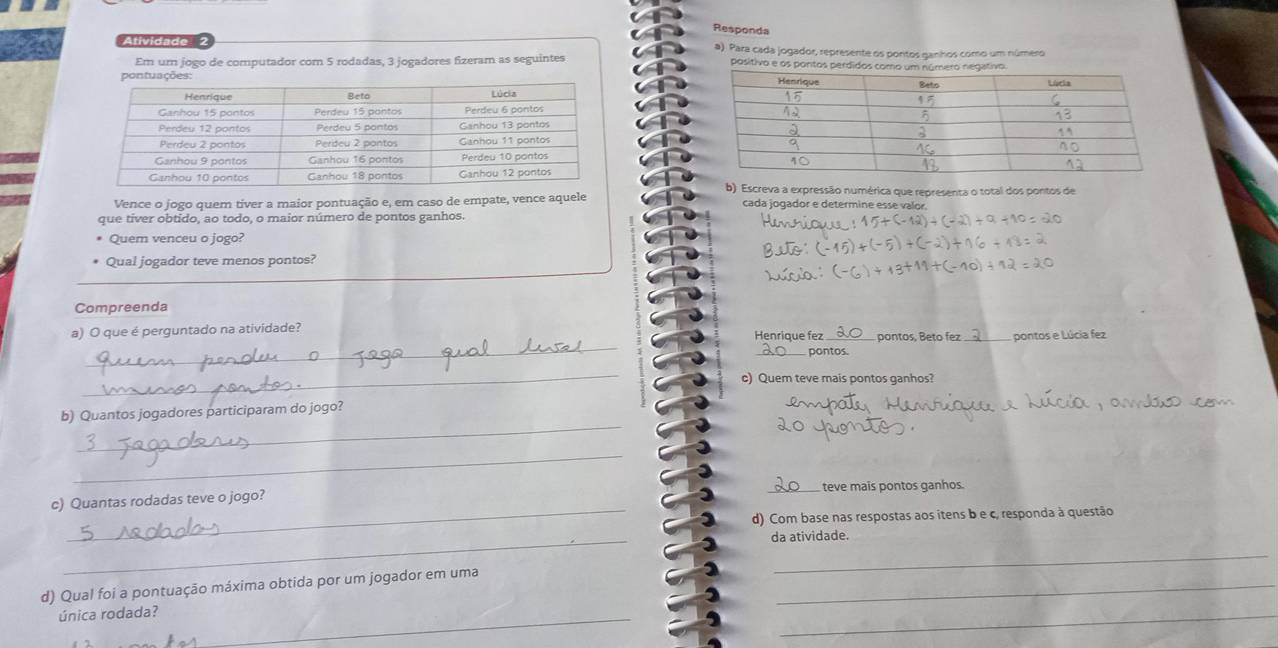 Atividade 2
Em um jogo de computador com 5 rodadas, 3 jogadores fizeram as seguintes
pontuações:
Henrique Beto Lúcia
Ganhou 15 pontos Perdeu 15 pontos Perdeu 6 pontos
Perdeu 12 pontos Perdeu 5 pontos Ganhou 13 pontos
Perdeu 2 pontos Perdeu 2 pontos Ganhou 11 pontos
Ganhou 9 pontos Ganhou 16 pontos Perdeu 10 pontos
Ganhou 10 pontos Ganhou 18 pontos Ganhou 12 pontos
Vence o jogo quem tiver a maior pontuação e, em caso de empate, vence aquele
que tiver obtido, ao todo, o maior número de pontos ganhos.
• Quem venceu o jogo?
• Qual jogador teve menos pontos?
Compreenda
a) O que é perguntado na atividade?
quem perdeu o jogo qual
menos pontos.
b) Quantos jogadores participaram do jogo?
3 jogadores
c) Quantas rodadas teve o jogo?
5 rodadas
d) Qual foi a pontuação máxima obtida por um jogador em uma
única rodada?
Responda
a) Para cada jogador, represente os pontos ganhos como um número
positivo e os pontos perdidos como um número negativo.
Henrique Beto Lúcia
15 15 6
12 5 13
2 2 11
9 16 10
10 18 12
b) Escreva a expressão numérica que representa o total dos pontos de
cada jogador e determine esse valor.
Henrique: 15+(-12)+(-2)+9+10=20
Beto: (-15)+(-5)+(-2)+16+18=2
Lúcia: (-6)+13+11+(-10)+12=20
Henrique fez 20 pontos, Beto fez 2 pontos e Lúcia fez
20 pontos.
c) Quem teve mais pontos ganhos?
empate, Henrique e Lúcia, ambos com
20 pontos.
20 teve mais pontos ganhos.
d) Com base nas respostas aos itens b e c, responda à questão
da atividade.